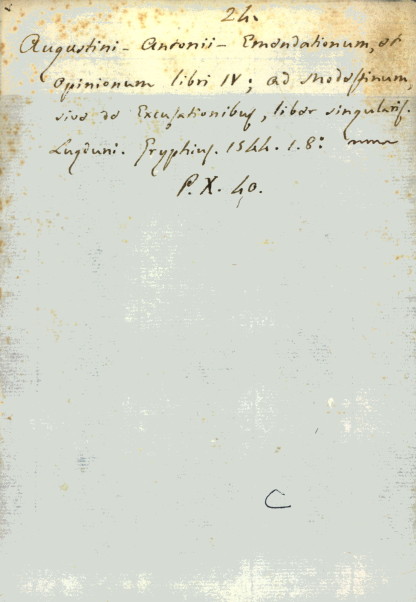 24.
Augustini - Antonii - Emendationum, et
Opinionum libri IV; ad Modestinum,
sive de Excusationibus, liber singularis.
Lugduni. Gryphius. 1544. 1. 8:
P. X. 40.
C